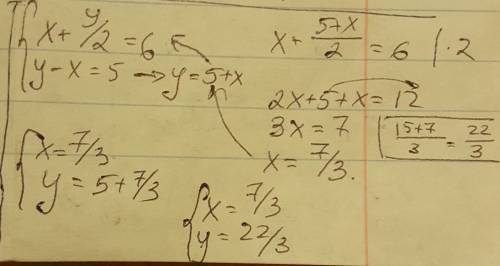 x + y/2 = 6
y - x = 5 → y = 5+x
x + (5+x)/2 = 6 | · 2
2x+5+x = 12
3x = 7
x = 7/3.
(15+7)/3 = 22/3
x = 7/3
y = 5+7/3
x = 7/3
y = 22/3